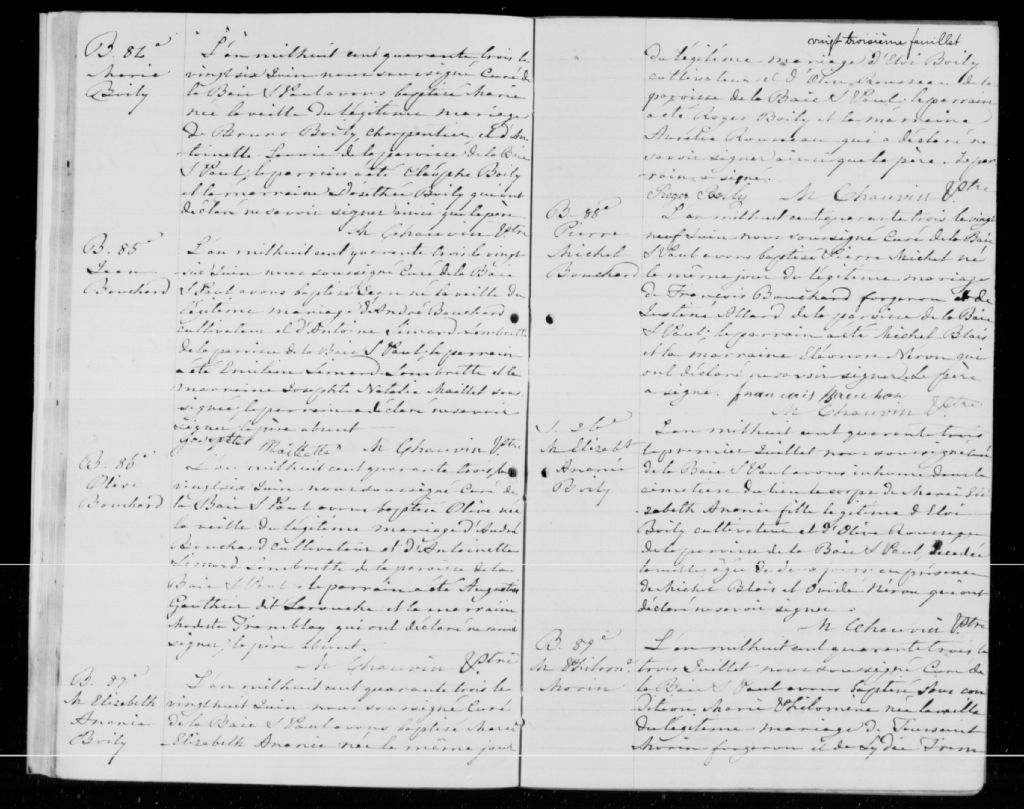 B. 84e
Marie
Boily
L'an mil huit cent quarante trois le
vingt six Juin nous soussigné Curé de
la Baie St Paul avons baptisé Marie
née la veille du légitime mariage
de Bruno Boily, charpentier et d'An
toinette Lavoie de la paroisse de la Baie
St Paul; le parrain a été Elzéphe Boily
et la marraine Dosithée Boily qui ont
déclaré ne savoir signer ainsi que le père.
M Chauvin Ptre
B. 85e
Jean
Bouchard
L'an mil huit cent quarante trois le vingt
six Juin nous soussigné Curé de la Baie
St Paul avons baptisé Jean né la veille du
légitime mariage d'André Bouchard
cultivateur et d'Antoine Simard Lombrette
de la paroisse de la Baie St Paul; le parrain
a été Emilien Simard Lombrette et la
marraine Josephte Natalie Maillet sous
signée, le parrain a déclaré ne savoir
signer, le père absent
Josephte Maillette M Chauvin Ptre
B. 86e
Olive
Bouchard
L'an mil huit cent quarante trois le
vingt six Juin nous soussigné Curé de
la Baie St Paul avons baptisé Olive née
la veille du légitime mariage d'André
Bouchard cultivateur et d'Antoinette
Simard Lombrette de la paroisse de la
Baie St Paul; le parrain a été Augustin
Gauthier dit Larouche et la marraine
Modeste Tremblay qui ont déclaré ne savoir
signer, le père absent.
M Chauvin Ptre
B. 87e
M Elizabeth
Ananie
Boily
L'an mil huit cent quarante trois le
vingt huit Juin nous soussigné Curé
de la Baie St Paul avons baptisé Marie
Elizabeth Ananie née le même jour
vingt troisième feuillet
du légitime mariage d'Eloi Boily
cultivateur et d'Olive Rousseau de la
paroisse de la Baie St Paul; le parrain
a été Roger Boily et la marraine
Aurélie Rousseau qui a déclaré ne
savoir signer ainsi que le père. Le par
rain a signé.
Roger Boily M Chauvin Ptre
B. 88e
Pierre
Michel
Bouchard
L'an mil huit cent quarante trois le vingt
neuf Juin nous soussigné Curé de la Baie
St Paul avons baptisé Pierre Michel né
le même jour du légitime mariage
de François Bouchard forgeron et de
Justine Allard de la paroisse de la Baie
St Paul; le parrain a été Michel Blais
et la marraine Eléonore Néron qui
ont déclaré ne savoir signer. Le père
a signé. francais Bouchar
M Chauvin Ptre
S. 26e
M Elizabt
Ananie
Boily
L'an mil huit cent quarante trois
le premier Juillet nous soussigné Curé
de la Baie St Paul avons inhumé dans le
cimetière du lieu le corps de Marie Eli
zabeth Ananie fille légitime d'Eloi
Boily cultivateur et d'Olive Rousseau
de la paroisse de la Baie St Paul, décédée
la veille âgée de deux jours en présence
de Michel Blais et Ovide Néron qui ont
déclaré ne savoir signer.
M Chauvin Ptre
B. 89e
M Philom.
Morin
L'an mil huit cent quarante trois le
trois Juillet nous soussigné Curé de
la Baie St Paul avons baptisé sous con
dition Marie Philomène née la veille
du légitime mariage de Toussaint
Morin forgeron et de Lydie Trem